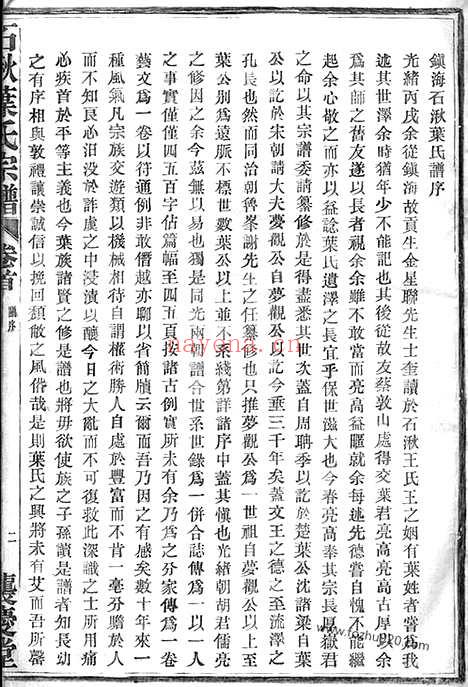 鎮海石湫葉氏譜序
光緒丙戌余從鎮海故貢生金星聯先生士奎讀於石湫王氏王之姻有葉姓者嘗為我
述其世澤余時猶年少不能記也其後從故友蔡敦山處得交葉君亮高亮高古厚以余
為其師之舊友遂以長者視余余雖不敢當而亮高益暱就余每述先德嘗自愧不能繼
起余心敬之而亦以益諗葉氏遺澤之長宜乎保世滋大也今春亮高奉其宗長厚嶽君
之命以其宗譜委請纂修於是得盡悉其世次蓋自周聃季以訖於楚葉公沈諸梁自葉
公以訖於宋朝請大夫夢觀公自夢觀公以訖今垂三千年矣蓋文王之德之至流澤之
孔長也然而同治朝魯峯謝先生之任纂修也只推夢觀公為一世祖自夢觀公以上至
葉公別為遠脈不標世數葉公以上並不系綫第詳諸序中蓋其愼也光緒朝胡君儒亮
之修因之余今茲無以易也獨是同光兩朝譜合世系世錄為一併合誌傳為一以一人
之事實僅僅四五百字佔篇幅至四五頁揆諸古例實所未有余乃為之分家傳為一卷
藝文為一卷以符通例非敢僭越亦聊以省篇牘云爾而吾乃因之有感矣數十年來一
種風氣凡宗族交遊類以機械相待自謂權術勝人自處於豐富而不肯一毫分贍於人
而不知良心汨沒於詐虞之中浸漬以釀今日之大亂而不可復救此深識之士所用痛
心疾首於平等主義也今葉族諸賢之修是譜也將毋欲使族之子孫讀是譜者知長幼
之有序相與敦禮讓崇誠信以挽回頹敝之風俗哉是則葉氏之興將未有艾而吾所馨
石湫葉氏宗譜
卷首
譜序
二
nayena.cn